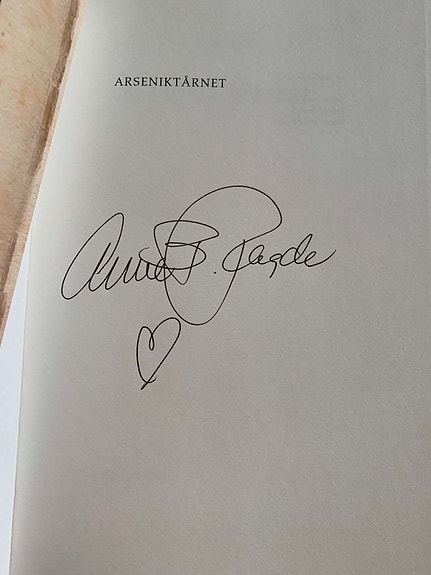 ARSENIKTÅRNET
Anne B. Ragde